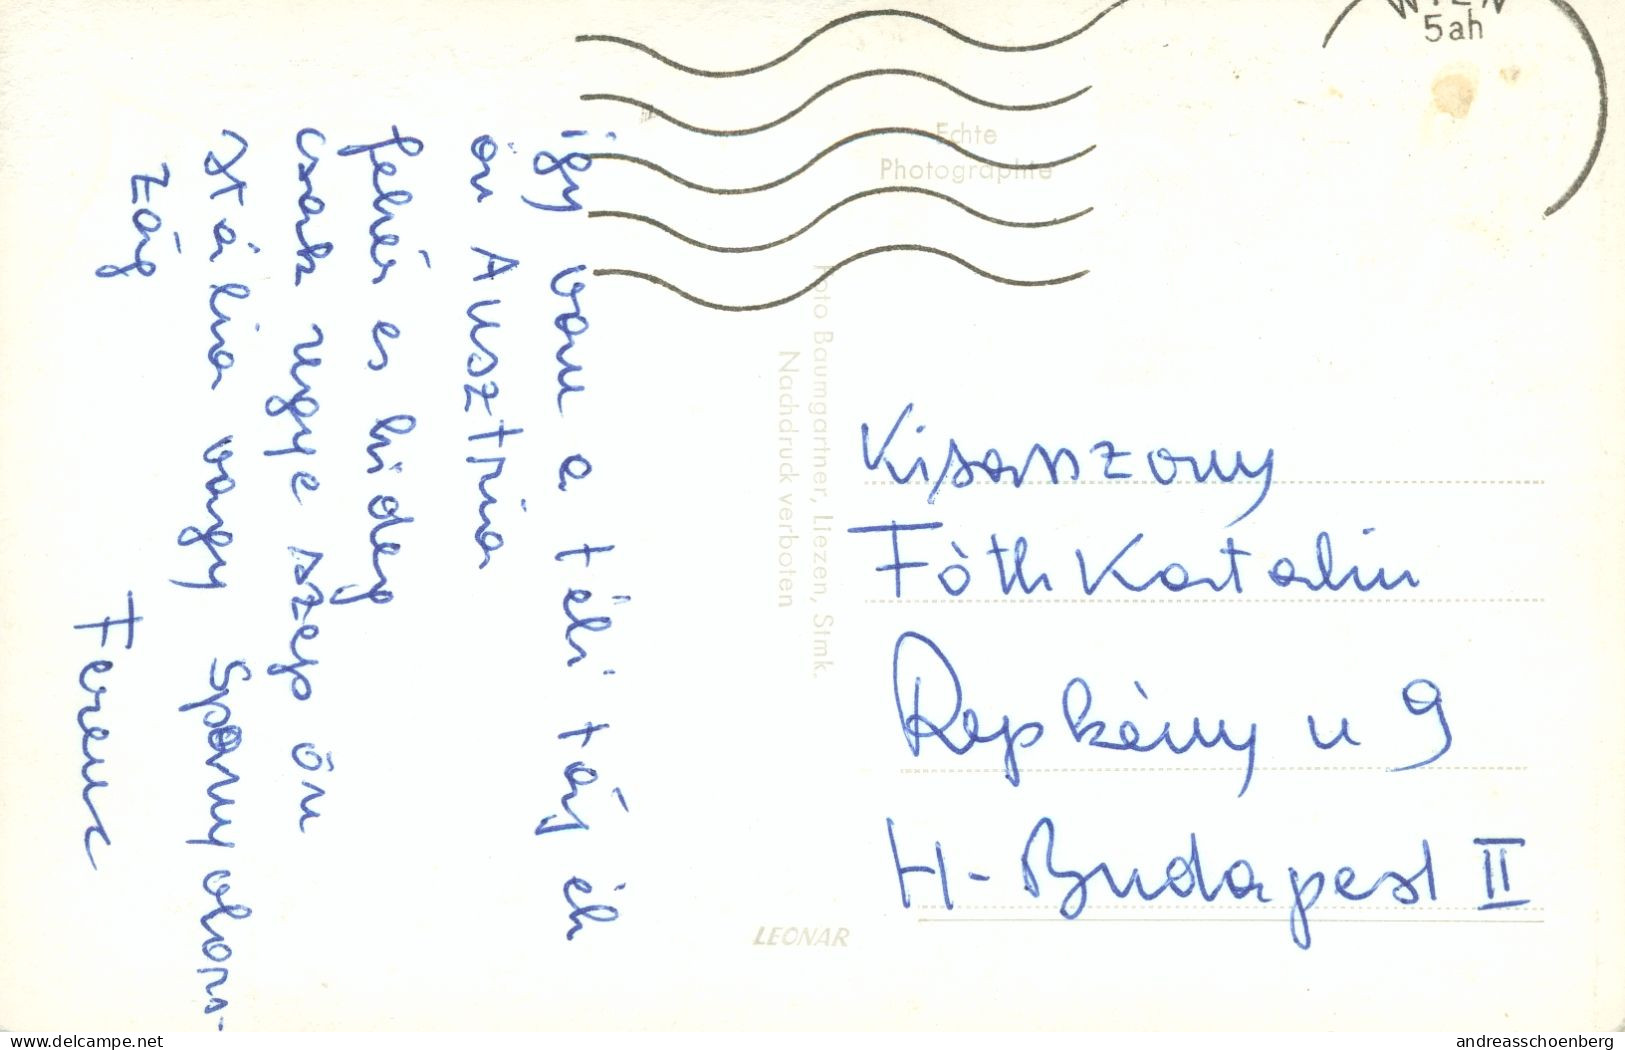 WIEN
5ah
Echte
Photographie
Foto Baumgartner, Liezen, Stmk.
Nachdruck verboten
LEONAR
így van a téli táj éh
ön Ausztria
fehér es hideg
csak ugye szep ön
Itália vagy Spanyolors-
zág
Ferenc
Kisasszony
Fòth Katalin
Repkèny u 9
H-Budapest II
delcampe.net
andreasschoenberg